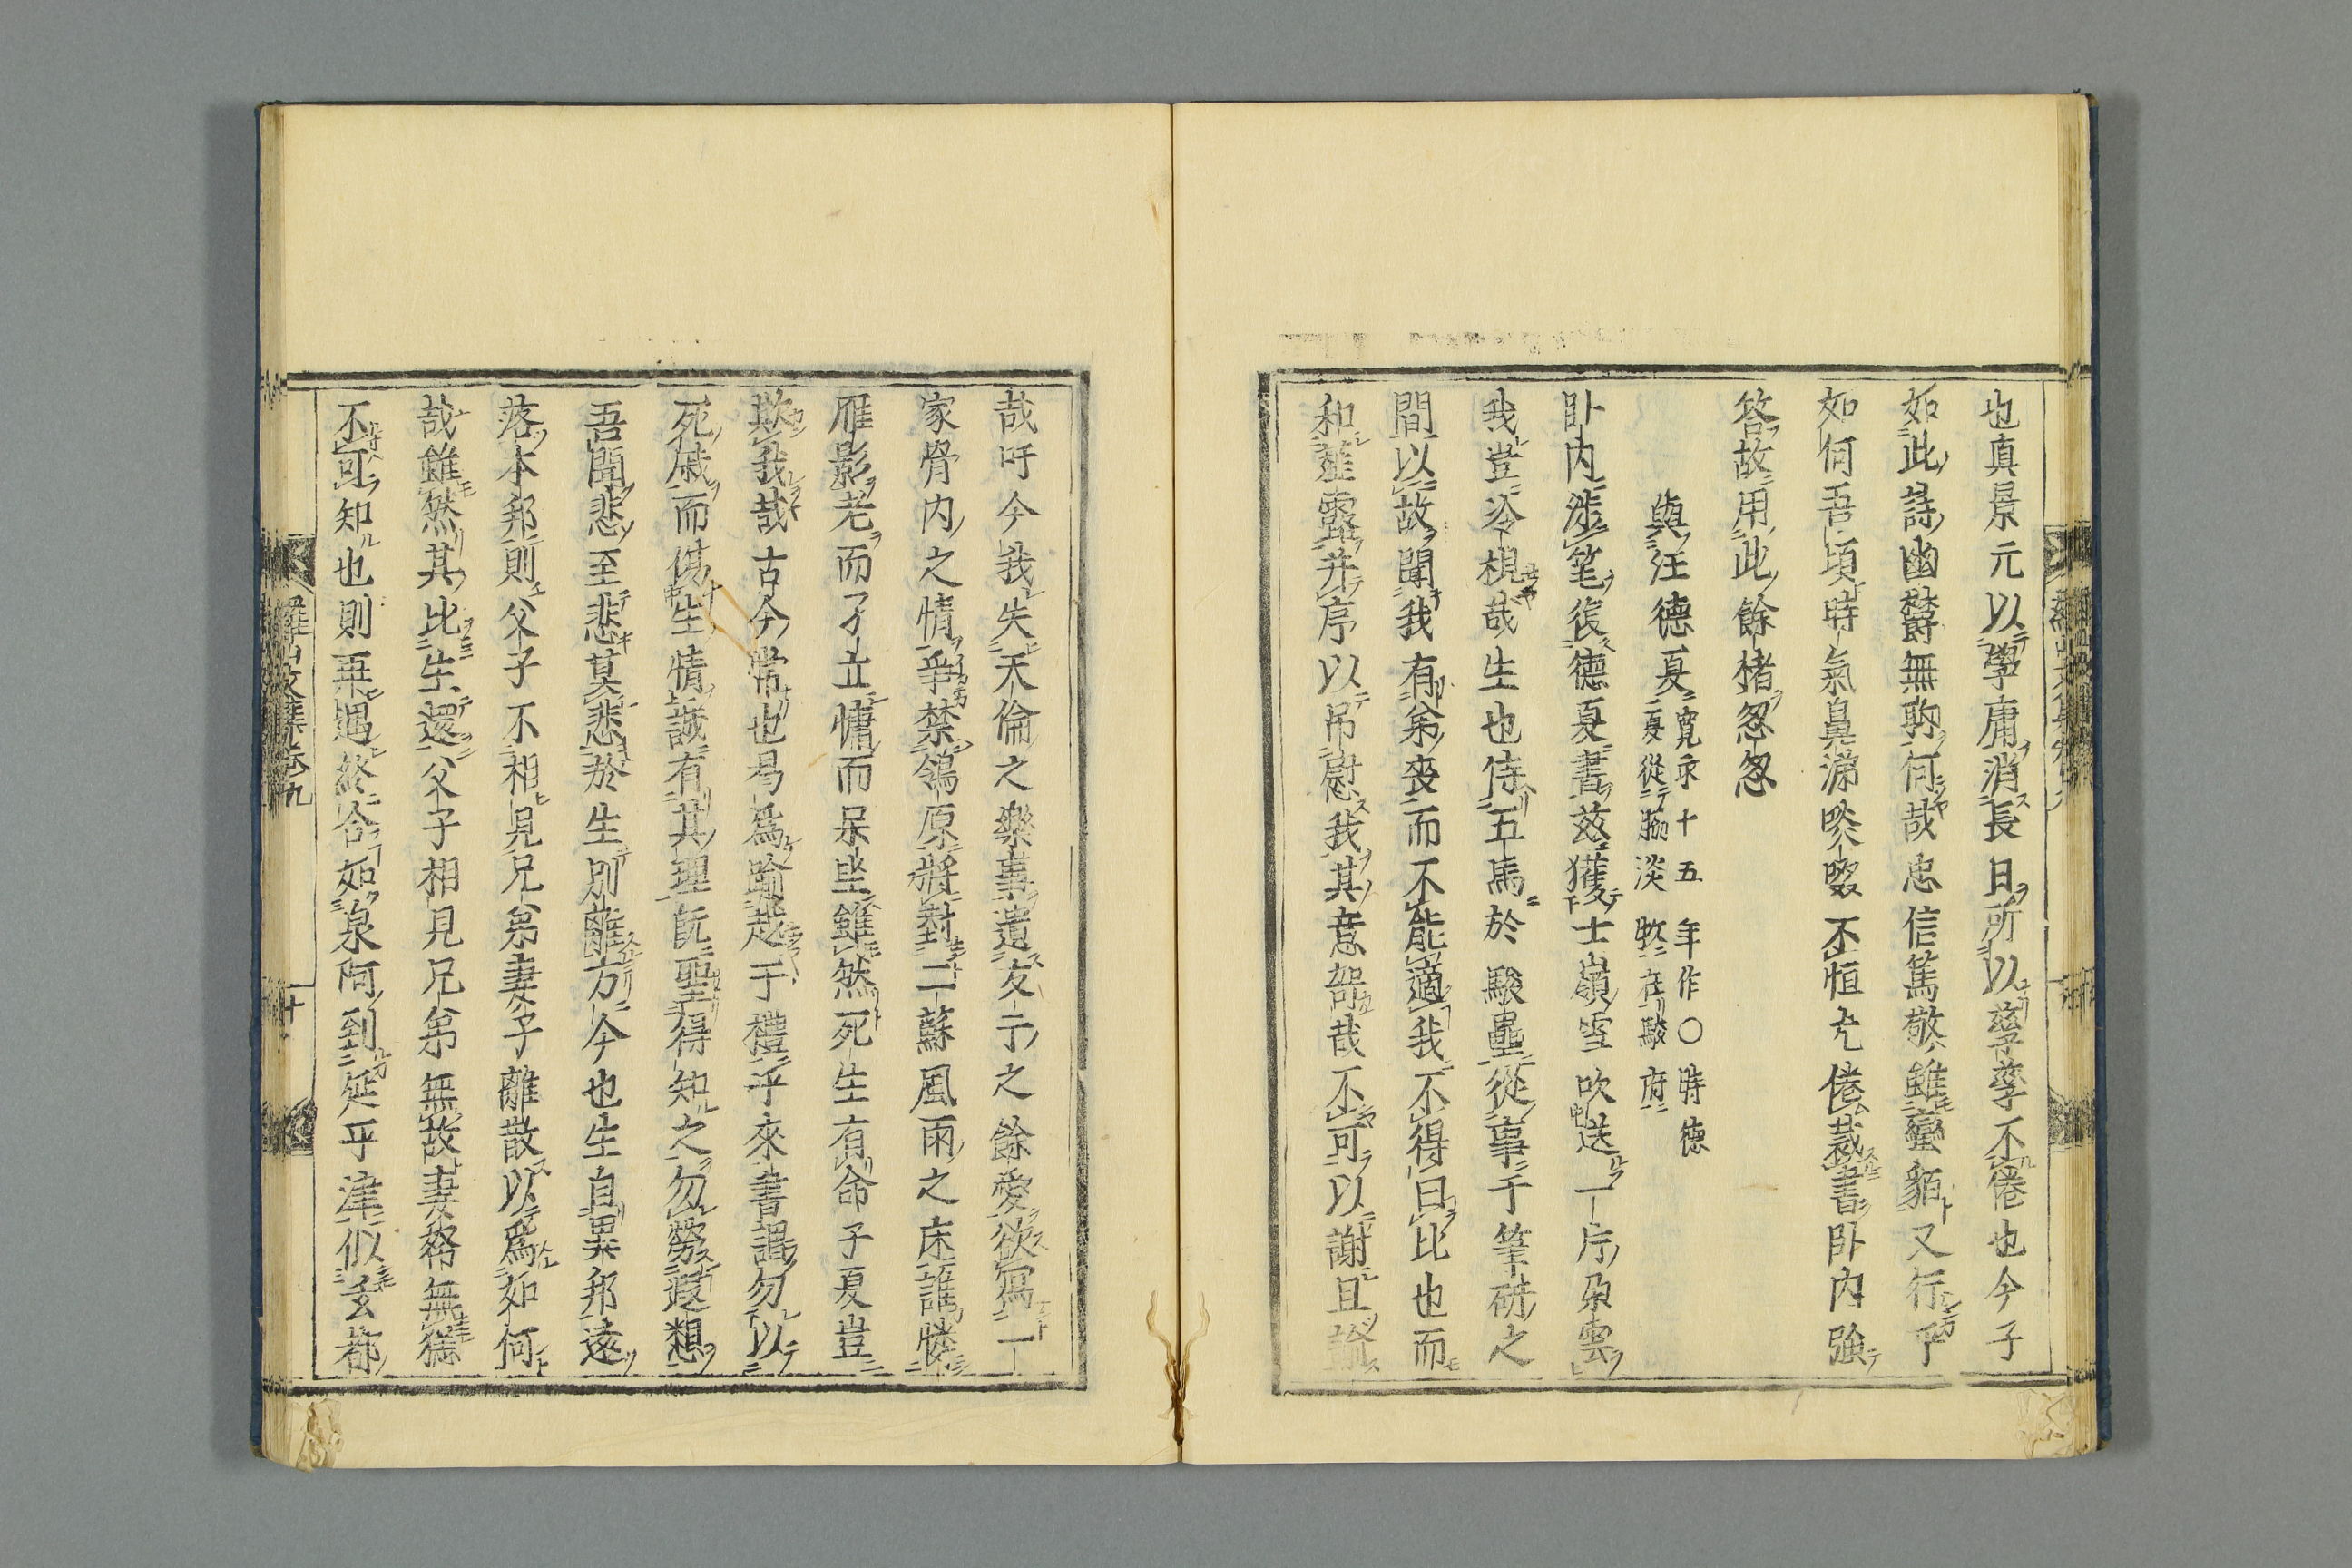 也真景元以學庸消長日所以孳孳不倦也今子
如此詩幽欝無聊何哉忠信篤敬雖蠻貊又行乎
如何吾頃時氣鼻涕啖啜不恒尢倦裁書卧内強
答故用此餘楮怱怱
與汪德夏寬永十五年作〇時德
夏從脇淡牧在駿府
卧内渉筆復德夏書玆獲士嶺雪吹送一片朶雲
我豈冷視哉生也侍五馬於駿壘從事于筆硏之
間以故聞我有弟喪而不能適我不得曰比也而
和薤露并序以吊慰我其意部哉不可以謝且諭
哉吁今我失天倫之樂事遺友于之餘愛欲寫一
家骨肉之情爭禁鴒原將對二蘇風雨之床誰憐
雁影老而孑立慵而呆坐雖然死生有命子夏豈
欺我哉古今常也曷爲踰越于禮乎來書謂勿以
死戚而傷生情誠有其理旣聖得知之勿勞遐想
吾聞悲至悲莫悲於生別離方今也生自異邦遠
落本邦則父子不相見兄弟妻子離散以爲如何
哉雖然其比生還父子相見兄弟無故妻帑無獨
不可知也則再遇終合如泉阿到延平津似玄都
羅山文集卷九
十